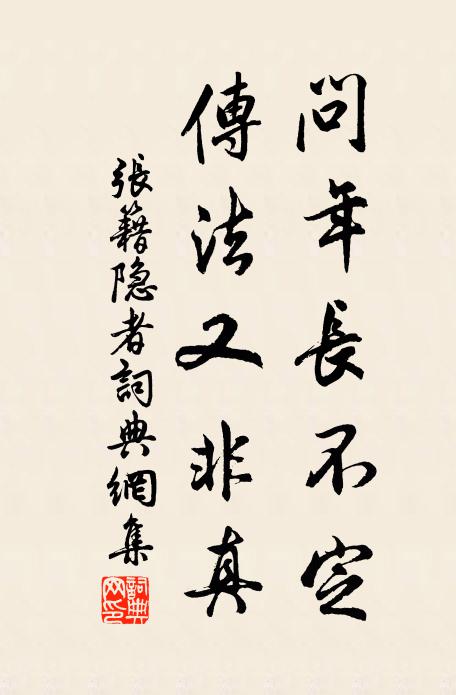 問年長不定
傳法又非真
張籍隐者詞典網集
詞典网印